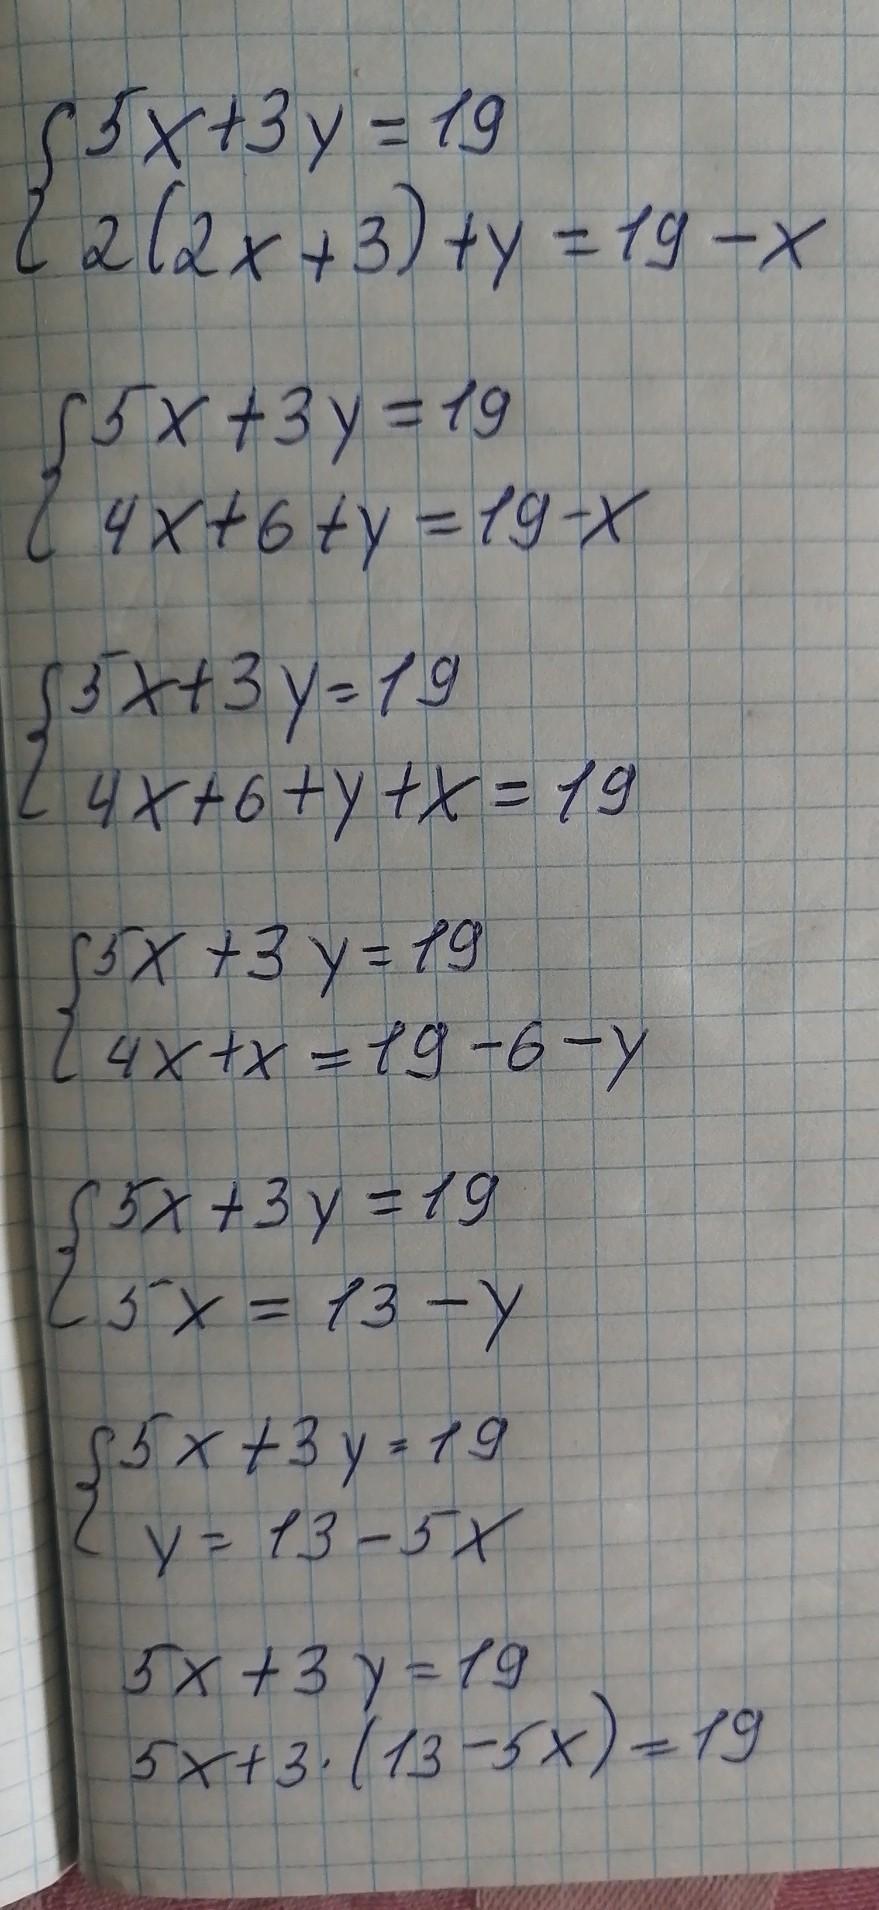 5x+3y=19
2(2x+3)+y=19-x
5x+3y=19
4x+6+y=19-x
5x+3y=19
4x+6+y+x=19
5x+3y=19
4x+x=19-6-y
5x+3y=19
5x=13-y
5x+3y=19
y=13-5x
5x+3y=19
5x+3·(13-5x)=19